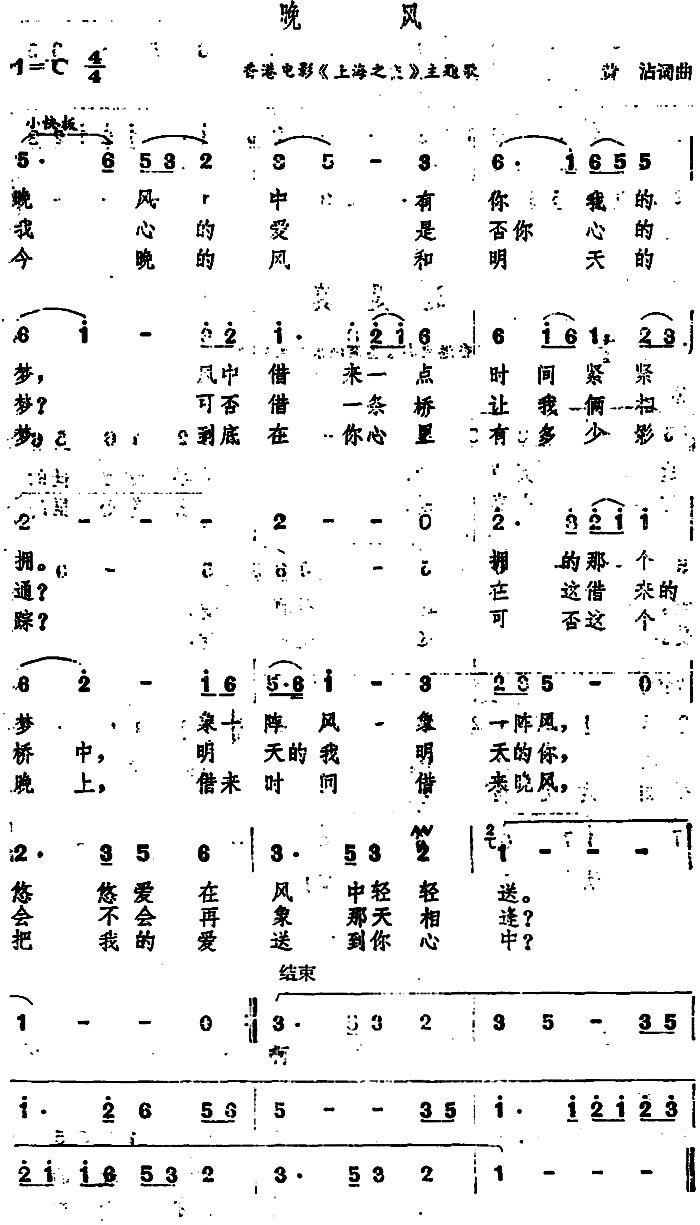 晚 风
1=C 4/4 香港电影《上海之》主题歌 沾词曲
小快板
5· 6 5 3 2 3 5 - 3 6· 1 6 5 5
晚 风 中 有 你 我 的
我 心 的 爱 是 否你 心 的
今 晚 的 风 和 明 天 的
6 1 - 3 2 1· 6 2 1 6 6 1 6 1, 2 3
梦, 风中 借 来一点 时 间 紧 紧
梦? 可否 借 一条桥 让 我 俩 相
梦 到底 在 你心里 有 多 少 影
2 - - - 2 - - 0 2· 3 2 1 1
拥。 拥 的那 个
通? 在 这借 来的
踪? 可 否这 个
6 2 - 1 6 5·6 1 - 3 2 3 5 - 0
梦 象一 阵 风 象 一阵风,
桥 中, 明 天的我 明 天的你,
晚 上, 借来 时 间 借 来晚风,
2· 3 5 6 3· 5 3 2 1 - - -
悠 悠 爱 在 风 中轻 轻 送。
会 不 会 再 象 那天 相 逢?
把 我 的 爱 送 到你 心 中?
结束
1 - - 0 3· 5 3 2 3 5 - 3 5
啊
1· 2 6 5 6 5 - - 3 5 1· 1 2 1 2 3
2 1 1 6 5 3 2 3· 5 3 2 1 - - -